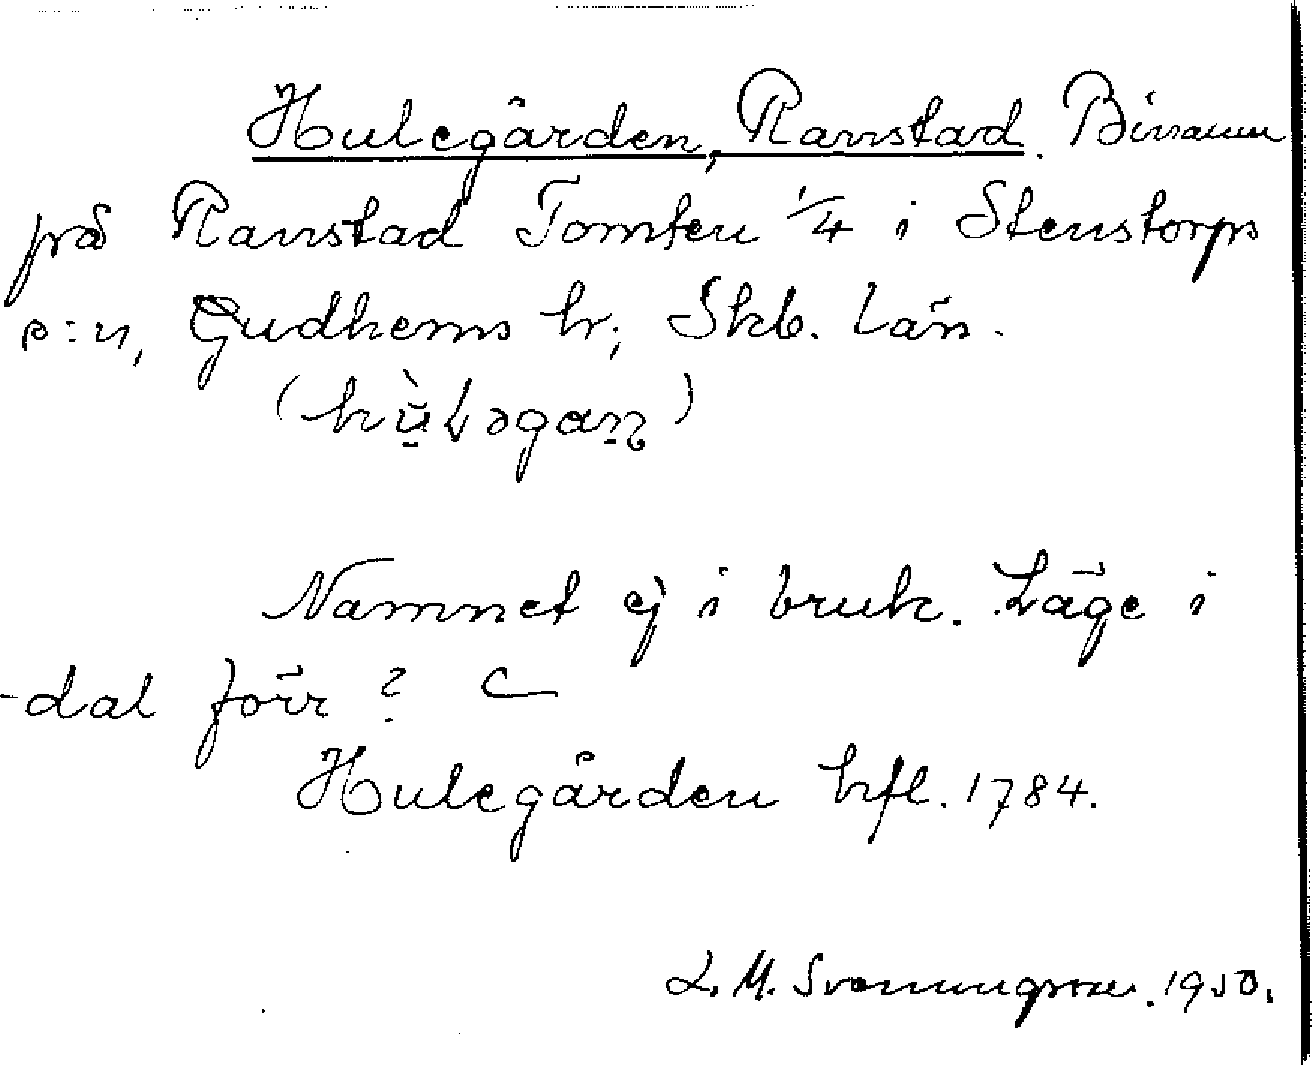 Hulegården, Ranstad. Binamn
på Ranstad Tomten 1/4 i Stenstorps
s:n, Gudhems hr; Skb. län.
(hù̱ɫəgaṉ)
Namnet ej i bruk. Läge i
-dal förr?
Hulegården hfl. 1784.
L. M. Svenungsson. 1950.